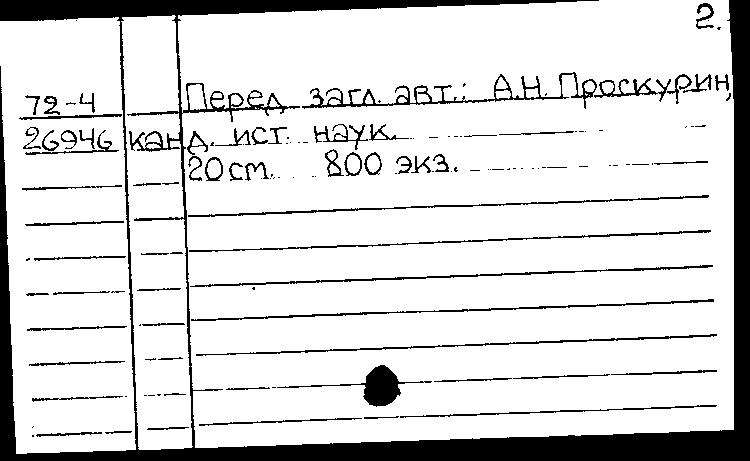 2.
72-4 Перед загл. авт.: А.Н. Проскурин,
26946 канд. ист. наук.
20 см. 800 экз.